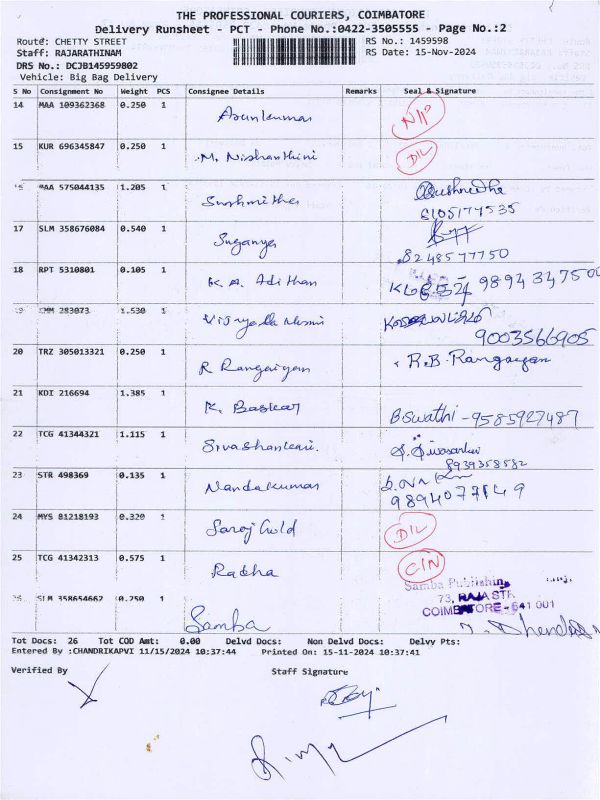 THE PROFESSIONAL COURIERS, COIMBATORE
Delivery Runsheet - PCT - Phone No.:0422-3505555 - Page No.:2
Route: CHETTY STREET RS No.: 1459598
Staff: RAJARATHINAM RS Date: 15-Nov-2024
DRS No.: DCJB145959802
Vehicle: Big Bag Delivery
S No Consignment No Weight PCS Consignee Details Remarks Seal & Signature
14 MAA 109362368 0.250 1 Arunkumar
15 KUR 696345847 0.250 1 M. Nishanthini D/L
16 MAA 575044135 1.205 1 Sushmitha
6105177535
17 SLM 358676084 0.540 1 Suganya
8248577750
18 RPT 5310801 0.105 1 K.A. Adithan 9894347500
19 EMM 283073 1.530 1
9003566905
20 TRZ 305013321 0.250 1 R Rangaiyan R.B. Rangaiyan
21 KDI 216694 1.385 1 K. Baskar B Swathi - 9585927487
22 TCG 41344321 1.115 1 Sivashankari. S. Sivasankar
8939358582
23 STR 498369 0.135 1 Nandakumar
24 MYS 81218193 0.320 1 Saroj Gold D/L
25 TCG 41342313 0.575 1 Radha
Samba Publishing
73, RAJA STR
COIMBATORE - 641 001
26 SLM 358654662 0.750 1 Samba
Tot Docs: 26 Tot COD Amt: 0.00 Delvd Docs: Non Delvd Docs: Delvy Pts:
Entered By :CHANDRIKAPVI 11/15/2024 10:37:44 Printed On: 15-11-2024 10:37:41
Verified By Staff Signature